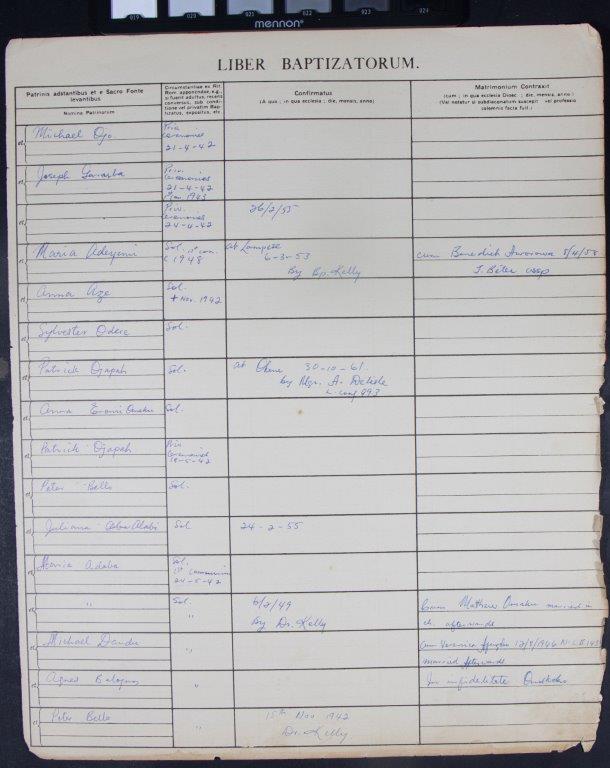 019
020
021
022
023
024
mennon
LIBER BAPTIZATORUM.
Patrinis adstantibus et e Sacro Fonte
levantibus
Nomina Patrinorum
Circumstantiae ex Rit.
Rom. apponendae, e.g.,
si fuerit adultus, recens
conversus, sub condi-
tione vel privatim Bap-
tizatus, expositus, etc.
Confirmatus
(A quo ; in qua ecclesia ; die, mensis, anno)
Matrimonium Contraxit
(cum ; in qua ecclesia Diœc. ; die, mensis, anno)
(Vel notatur si subdiaconatum suscepit vel professio
solemnis facta fuit.)
et Michael Ojo
Priv.
Ceremonies
21-4-42
et Joseph
Priv.
Ceremonies
21-4-42
1943
et
Priv.
Ceremonies
24-4-42
26/2/55
et Maria Adeyemi
Sol. 1st com.
1948
at Lampese
6-3-53
By Bp. Kelly
cum Benedict 5/4/58
J. Beter
et Anna Aze
Sol.
+ Nov. 1942
et Sylvester Odere
Sol.
et Patrick Ojapah
Sol.
at Okene 30-10-61
by Mgr. A. Delisle
L. conf 993
et Anna Omaku
Sol.
et Patrick Ojapah
Priv
Ceremonies
-5-42
et Peter Bello
Sol.
et Juliana Alabi
Sol
24-2-55
et Maria Adaba
Sol.
1st Communion
24-5-42
et "
Sol.
"
6/2/49
By Dr. Kelly
Cum Mathew Omaku married in
ch. afterwards
et Michael Dauda
"
cum Veronica 12/8/1946 N. L.B. 143
married afterwards
et Agnes Balogun
"
In infidelitate
et Peter Bello
"
15th Nov 1942
Dr. Kelly